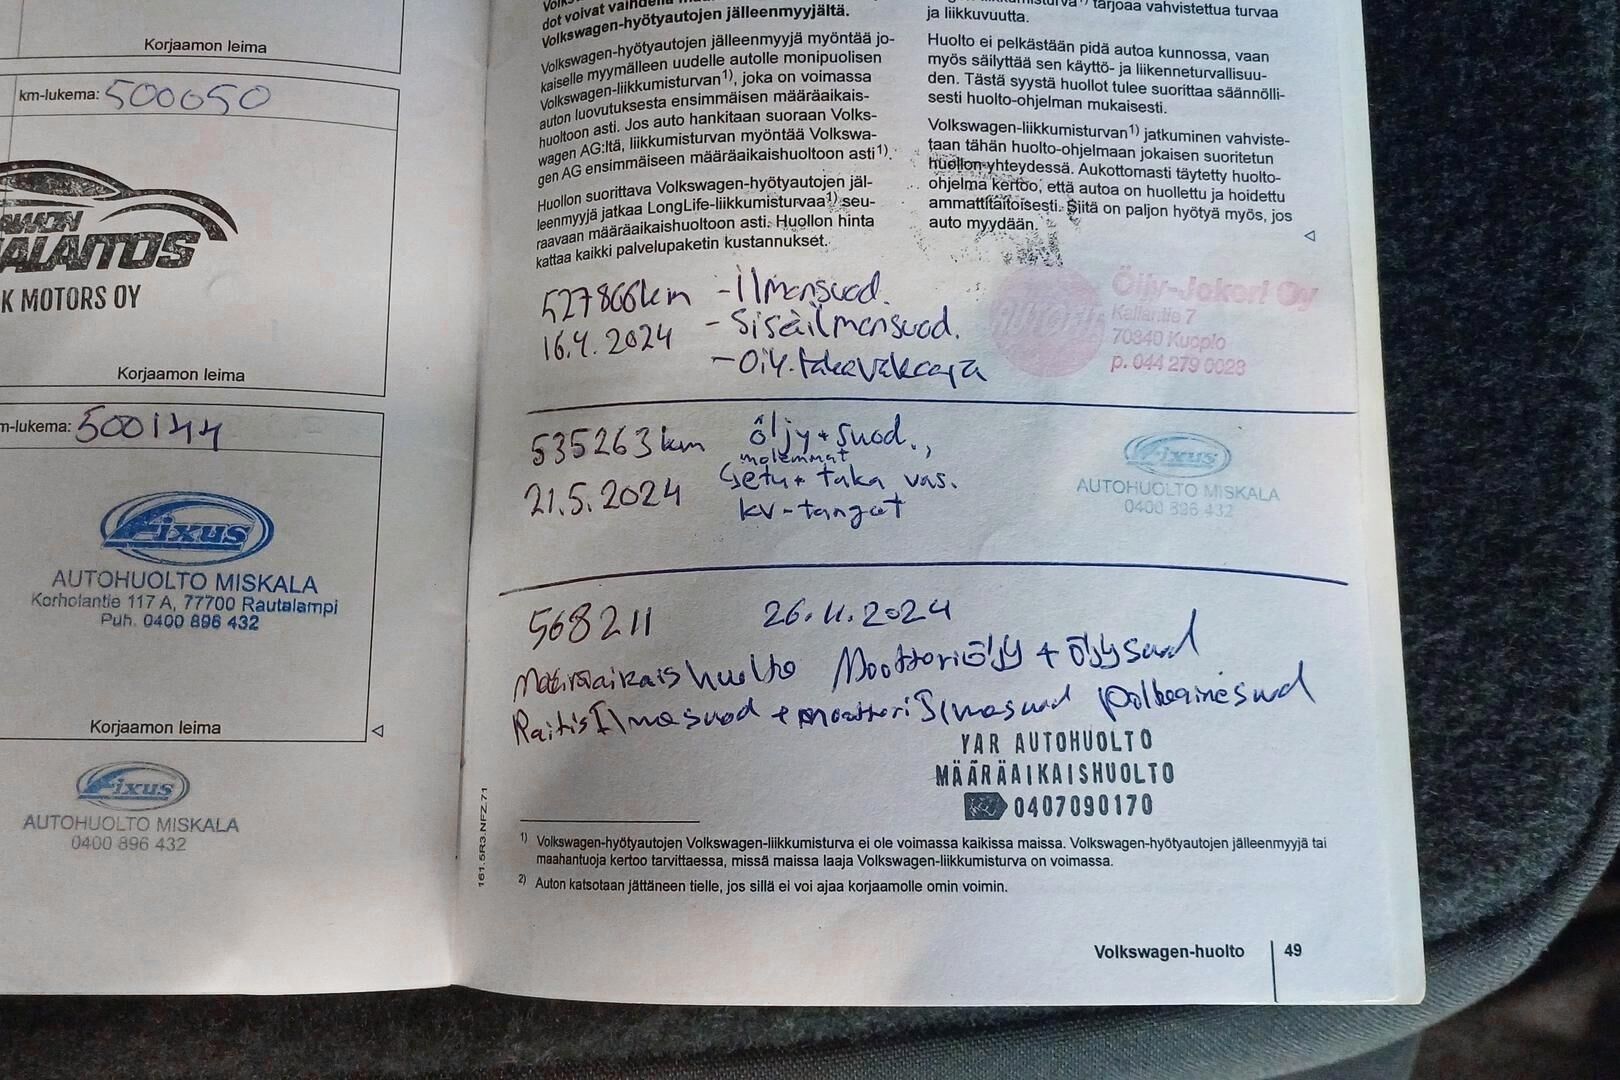 Korjaamon leima
km-lukema: 500050
ALAITOS
K MOTORS OY
Korjaamon leima
m-lukema: 500144
Fixus
AUTOHUOLTO MISKALA
Korholantie 117 A, 77700 Rautalampi
Puh. 0400 896 432
Korjaamon leima
Fixus
AUTOHUOLTO MISKALA
0400 896 432
dot voivat vaihdella
Volkswagen-hyötyautojen jälleenmyyjältä.
Volkswagen-hyötyautojen jälleenmyyjä myöntää jo-
kaiselle myymälleen uudelle autolle monipuolisen
Volkswagen-liikkumisturvan1), joka on voimassa
auton luovutuksesta ensimmäisen määräaikais-
huoltoon asti. Jos auto hankitaan suoraan Volks-
wagen AG:ltä, liikkumisturvan myöntää Volkswa-
gen AG ensimmäiseen määräaikaishuoltoon asti1).
Huollon suorittava Volkswagen-hyötyautojen jäl-
leenmyyjä jatkaa LongLife-liikkumisturvaa1) seu-
raavaan määräaikaishuoltoon asti. Huollon hinta
kattaa kaikki palvelupaketin kustannukset.
tarjoaa vahvistettua turvaa
ja liikkuvuutta.
Huolto ei pelkästään pidä autoa kunnossa, vaan
myös säilyttää sen käyttö- ja liikenneturvallisuu-
den. Tästä syystä huollot tulee suorittaa säännölli-
sesti huolto-ohjelman mukaisesti.
Volkswagen-liikkumisturvan1) jatkuminen vahviste-
taan tähän huolto-ohjelmaan jokaisen suoritetun
huollon yhteydessä. Aukottomasti täytetty huolto-
ohjelma kertoo, että autoa on huollettu ja hoidettu
ammattitaitoisesti. Siitä on paljon hyötyä myös, jos
auto myydään.
527866km - Ilmansuod.
16.4.2024 - Sisäilmansuod.
- Öly. takavakaaja
Öljy-Jokeri Oy
Kallantie 7
70340 Kuopio
p. 044 279 0028
535263 km öljy + suod.,
molemmat
21.5.2024 etu + taka vas.
kv-tangot
Fixus
AUTOHUOLTO MISKALA
0400 896 432
568211 26.11.2024
Määräaikaishuolto Moottoriöljy + öljysuod
RaitisIlmasuod + moottori Ilmasuod polttoainesuod
YAR AUTOHUOLTO
MÄÄRÄAIKAISHUOLTO
0407090170
1) Volkswagen-hyötyautojen Volkswagen-liikkumisturva ei ole voimassa kaikissa maissa. Volkswagen-hyötyautojen jälleenmyyjä tai
maahantuoja kertoo tarvittaessa, missä maissa laaja Volkswagen-liikkumisturva on voimassa.
2) Auton katsotaan jättäneen tielle, jos sillä ei voi ajaa korjaamolle omin voimin.
161.5R3.NFZ.71
Volkswagen-huolto 49